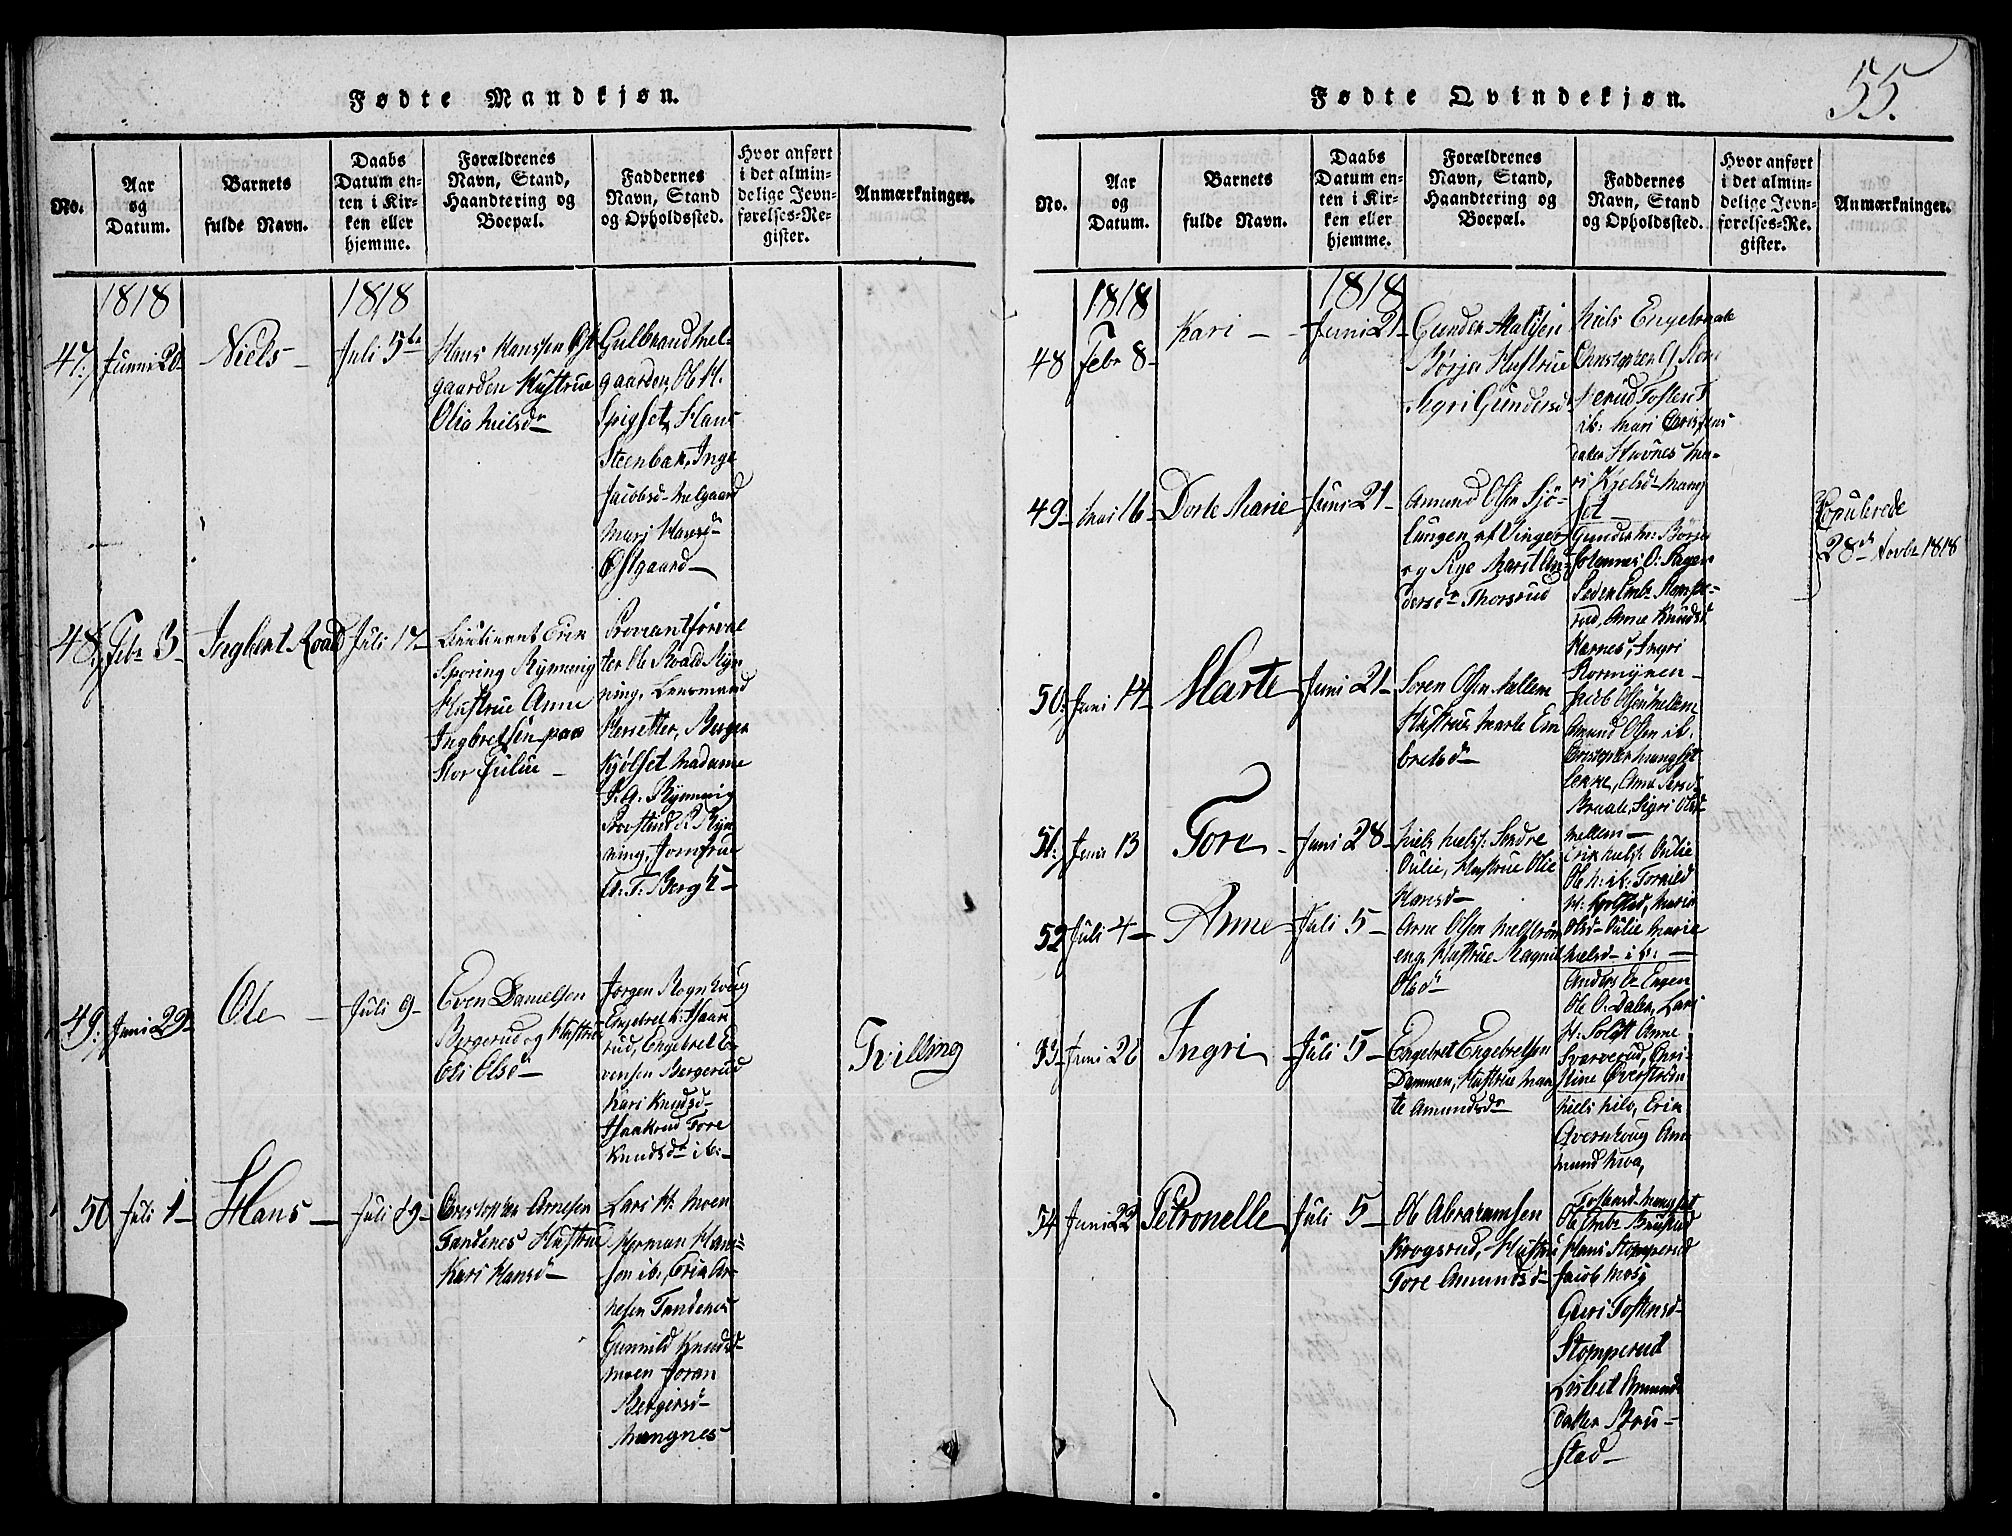 Fødte Mandkjøn.
No.
Aar
og
Datum.
Barnets
fulde Navn.
Daabs
Datum en-
ten i Kir-
ken eller
hjemme.
Forældrenes
Navn, Stand,
Haandtering og
Boepæl.
Faddernes
Navn, Stand
og Opholdssted.
Hvor anført
i det almin-
delige Jevn-
førelses-Re-
gister.
Anmærkninger.
1818
1818
47.
Junni 20-
Niels-
Juli 5te
Hans Hanssen Øst
gaarden Hustrue
Olia Nielsd
Gulbrand Mel-
gaarden, Ole H.
Spigset, Hans
Steenbak, Inge
Jacobsd Melgaard
Mari Hansd
Østgaard-
48.
Febr 3-
Ingbert Roald
Juli 17-
Lieutinent Erik
Sporing Rynning
Hustrue Anne
Ingbretsen paa
Stor Julue-
Proviantforval
ter Ole Roald Ryn
ning, Lensmand
Berger
Kjølset Madame
J. A. Rynning
R. Ryn
ning, Jomfrue
A. T. Bergh-
49.
Juni 29-
Ole-
Juli 9-
Even Danielsen
Bergerud og Hustrue
Eli Olsd-
Jørgen Rognhoug
Engebret K. Haak
rud, Engebret E
vensen Bergerud
Kari Knudsd-
Haakrud Tore
Knudsdr ib:-
Tvilling
50
Juli 1-
Hans-
Juli 19-
Christopher Arnesen
Tandenes Hustrue
Kari Hansd-
Lars H. Moen
Herman Han-
sen ib., Erik Ar-
nesen Tandenes
Gunnild Knudsd
Moen Joran
Bergersd-
Mangnes
55.
Fødte Qvindekjøn.
No.
Aar
og
Datum.
Barnets
fulde Navn.
Daabs
Datum en-
ten i Kir-
ken eller
hjemme.
Forældrenes
Navn, Stand,
Haandtering og
Boepæl.
Faddernes
Navn, Stand
og Opholdssted.
Hvor anført
i det almin-
delige Jevn-
førelses-Re-
gister.
Anmærkninger.
1818
1818
48
Febr 8-
Kari-
Juni 21-
Gunder Madsen
Børja Hustrue
Sigri Gundersd
Niels Engelsaale
Christopher
nerud Tosten
ib: Mari Christens
datter Stavnes Ma-
ri Kjelsd Mang
set
49.
Mai 16-
Dorte Marie
Juni 21-
Amund Olsen Sjø-
lungen af Vinger
og Pige Marit An-
dersdr Thorsrud
Gunder M: Børja
Johannes O:
Peder Embr Stompe-
rud, Anne Knudsd
Harnes, Ingri
Kormynen-
Copulerede
28d Novbr 1818
50.
Juni 14-
Marte
Juni 21-
Soren Olsen Mellem
Hustrue Marte Em
bretsd-
Jacob Olsen Mellem
Amund Olsen ib.
Christopher Mangset
Anne Persd
Braate, Sigri Olsd
Mellem-
51.
Juni 13
Tore-
Juni 28-
Niels Niels: Søndre
Oulie, Hustrue Olie
Hansd-
Erik Niels: Oulie
Ole N: ib: Tormod
H: Marie
Olsd Oulie Marie
Nielsd ib:-
52
Juli 4-
Anne
Juli 5-
Arne Olsen Melstrøm
eng, Hustrue Magnil
Olsd
Anders O Engen
Ole O: Dalen, Lars
H: Anne
Sværverud, Chri-
stine Øverstrøm
53-
Juni 26
Ingri-
Juli 5-
Engebret Engebretsen
Dammen, Hustrue Mar
te Amundsdr
Niels Erik
Overnhoug Am
mund Moa,
Tostensd Mangset
54
Juni 22
Petronelle
Juli 5-
Ole Abrahamsen
Krogsrud, Hustrue
Tore Amundsd-
Ole Embr Brustad
Hans Stomperud
Jacob
Guri Tostensd-
Stomperud
Lisbet Amunds
datter Bru-
stad-